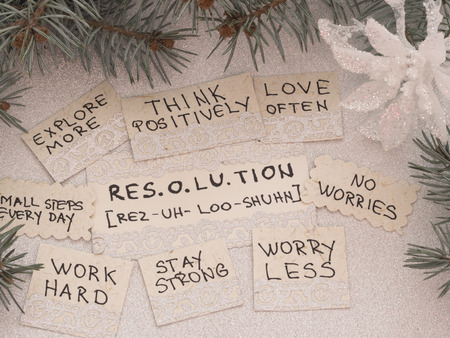 EXPLORE
MORE
THINK
POSITIVELY
LOVE
OFTEN
SMALL STEPS
EVERY DAY
RES.O.LU.TION
[REZ-UH-LOO-SHUHN]
NO
WORRIES
WORK
HARD
STAY
STRONG
WORRY
LESS